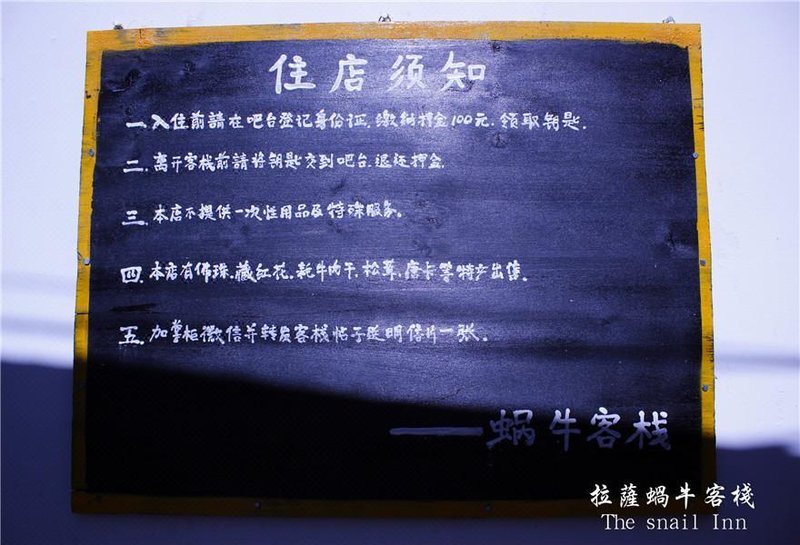 住店须知
一.入住前請在吧台登记身份证.缴纳押金100元.领取钥匙.
二.离开客栈前請将钥匙交到吧台.退还押金.
三.本店不提供一次性用品及特殊服务。
四.本店有佛珠.藏红花.耗牛肉干.松茸.唐卡等特产出售.
五.加掌柜微信并转发客栈帖子送明信片一张。
——蜗牛客栈
拉薩蝸牛客棧
The snail Inn